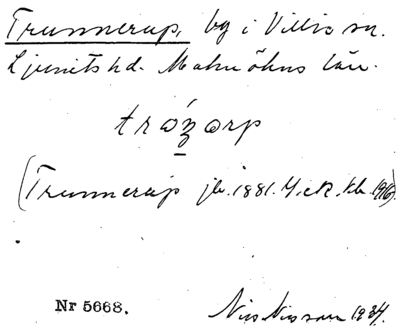 Trunnerup, by i Villie sn.
Ljunits hd. Malmöhus län.
(Trunnerup jb. 1881.
Nr 5668.
Nils Nilsson 1934.